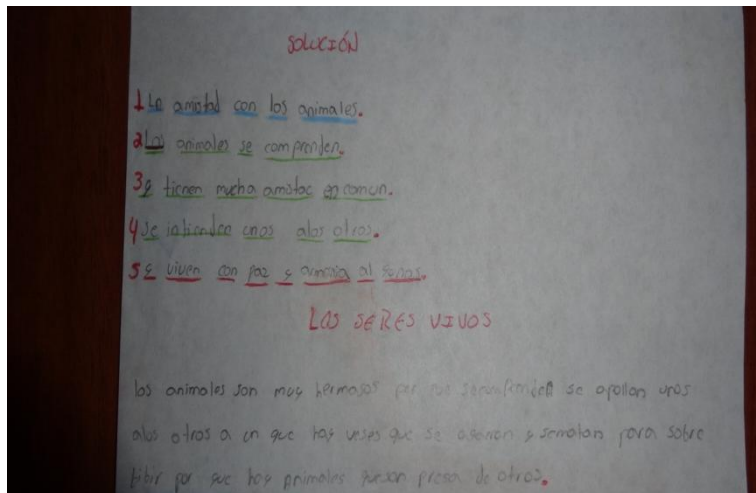 SOLUCIÓN
1 La amistad con los animales.
2 Los animales se comprenden.
3 y tienen mucha amistac en comun.
4 se intienden unos alos otros.
5 y viven con paz y armonia al
LOS SERES VIVOS
los animales son muy hermosos por se apollan unos
alos otros a un que hay veses que se y sematan para sobre
bibir por que hay animales queson presa de otros.